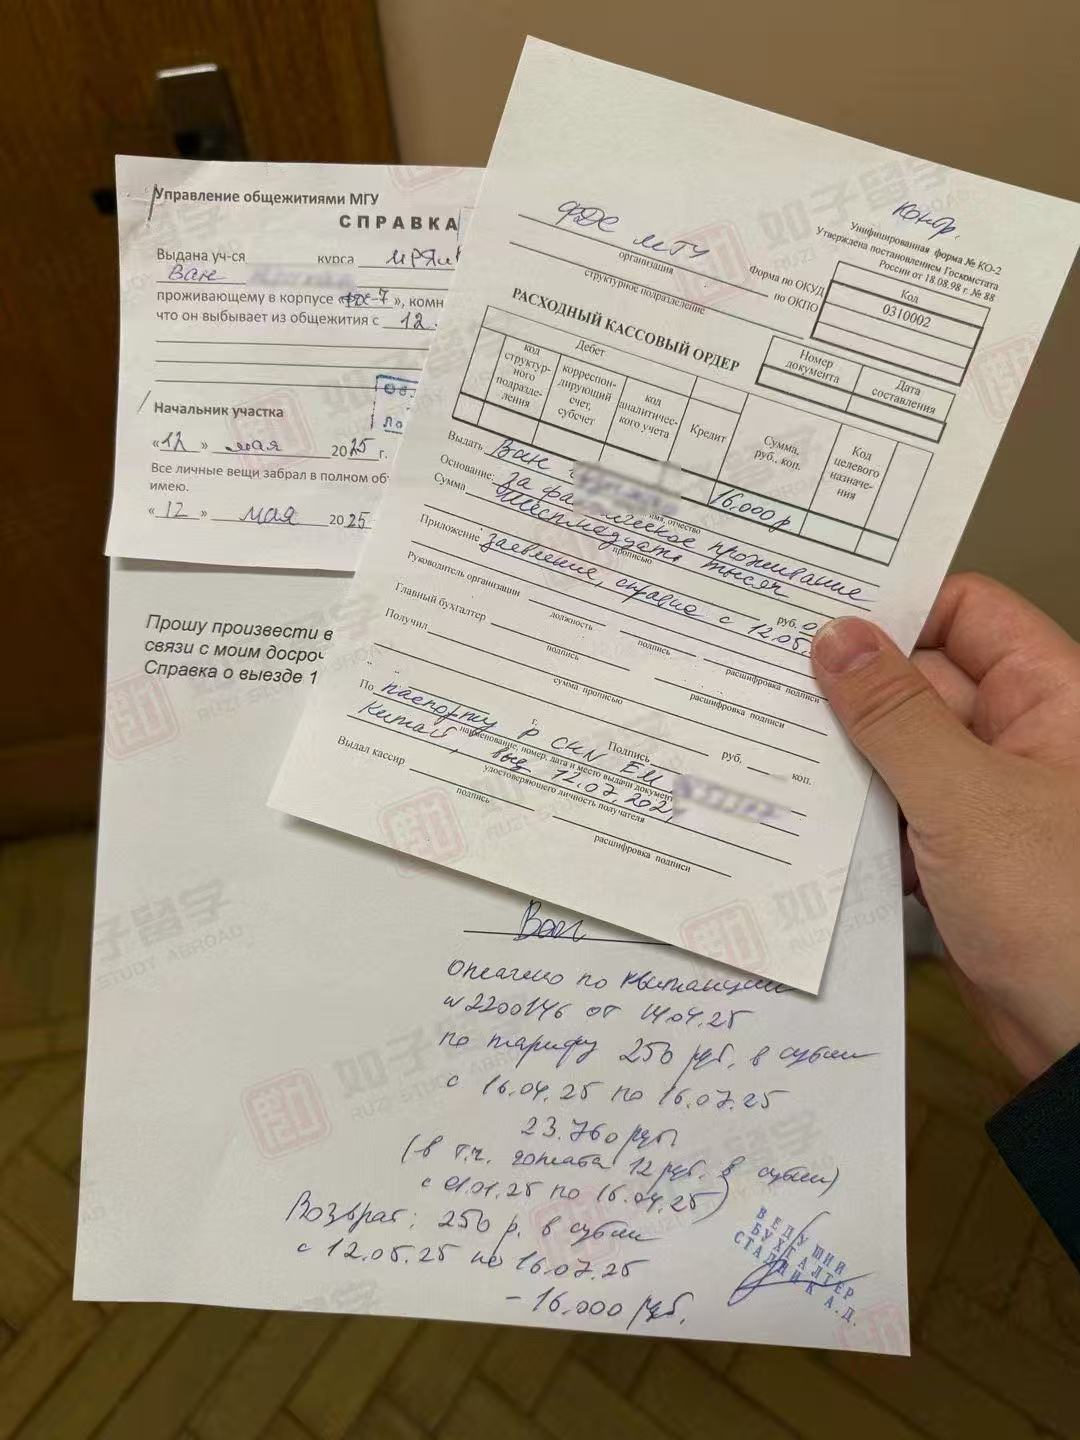 Управление общежитиями МГУ
СПРАВКА
Выдана уч-ся курса ИРЯ
Ван
проживающему в корпусе «ФДС-7», комн
что он выбывает из общежития с 12.
Об.
Ло
Начальник участка
«12» мая 2025 г.
Все личные вещи забрал в полном об
имею.
«12» мая 2025
Конф.
Унифицированная форма № КО-2
Утверждена постановлением Госкомстата
России от 18.08.98 г. № 88
ФДС МГУ
организация
структурное подразделение
Форма по ОКУД
по ОКПО
Код
0310002
РАСХОДНЫЙ КАССОВЫЙ ОРДЕР
Номер документа
Дата составления
Дебет
код структурного подразделения
корреспондирующий счет, субсчет
код аналитического учета
Кредит
Сумма, руб. коп.
Код целевого назначения
16.000 р
Выдать Ван
имя, отчество
Основание: за фактическое проживание
Сумма Шестнадцать тысяч
прописью
руб. 0
Приложение заявление, справка с 12.05.
Руководитель организации
должность
подпись
расшифровка подписи
Главный бухгалтер
подпись
расшифровка подписи
Получил
сумма прописью
руб. коп.
г. Подпись
По паспорту р CHN EM
наименование, номер, дата и место выдачи документа
Китай, выд 12.07.202
удостоверяющего личность получателя
Выдал кассир
подпись
расшифровка подписи
Прошу произвести в
связи с моим досроч
Справка о выезде 1
Ван
оплачено по квитанции
№2200146 от 14.04.25
по тарифу 250 руб. в сутки
с 16.04.25 по 16.07.25
23.760 руб.
(в т.ч. доплата 12 руб. в сутки)
с 01.01.25 по 16.04.25)
Возврат: 250 р. в сутки
с 12.05.25 по 16.07.25
– 16.000 руб.
ВЕДУЩИЙ
БУХГАЛТЕР
СТАДНИК А.Д.
如子留学
RUZI STUDY ABROAD